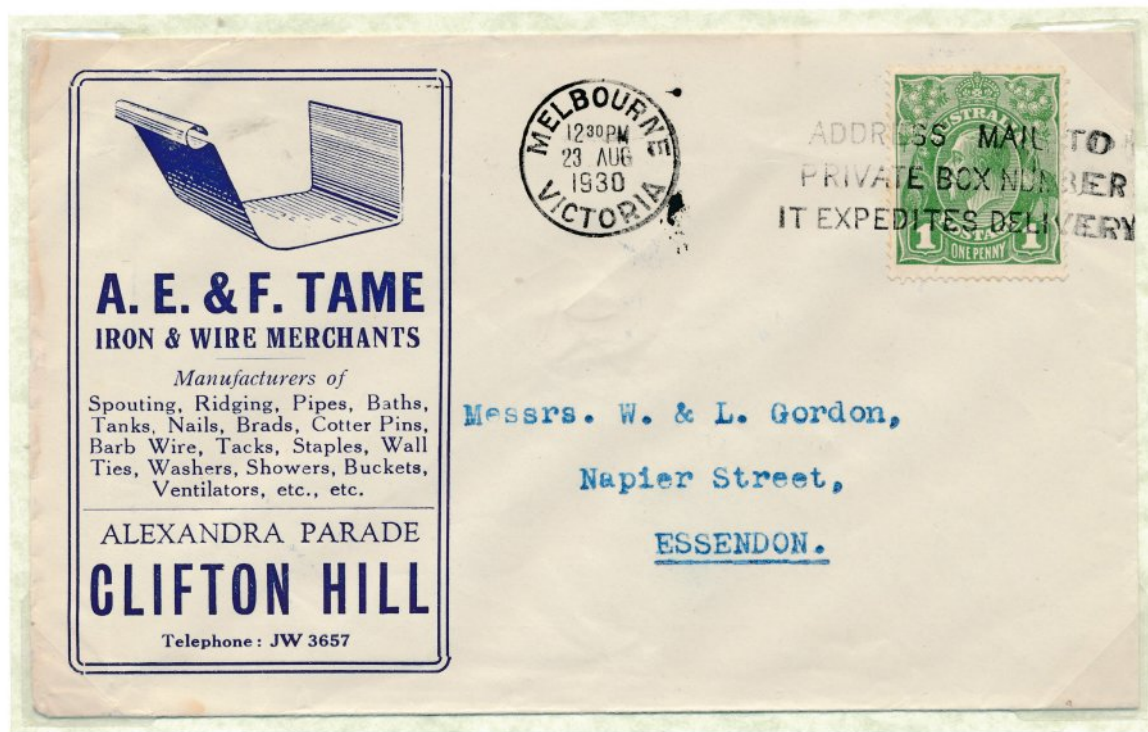 A. E. & F. TAME
IRON & WIRE MERCHANTS
Manufacturers of
Spouting, Ridging, Pipes, Baths,
Tanks, Nails, Brads, Cotter Pins,
Barb Wire, Tacks, Staples, Wall
Ties, Washers, Showers, Buckets,
Ventilators, etc., etc.
ALEXANDRA PARADE
CLIFTON HILL
Telephone: JW 3657
MELBOURNE
12 30 PM
23 AUG
1930
VICTORIA
ADDRESS MAIL TO
PRIVATE BOX NUMBER
IT EXPEDITES DELIVERY
AUSTRALIA
POSTAGE
1 ONE PENNY 1
Messrs. W. & L. Gordon,
Napier Street,
ESSENDON.